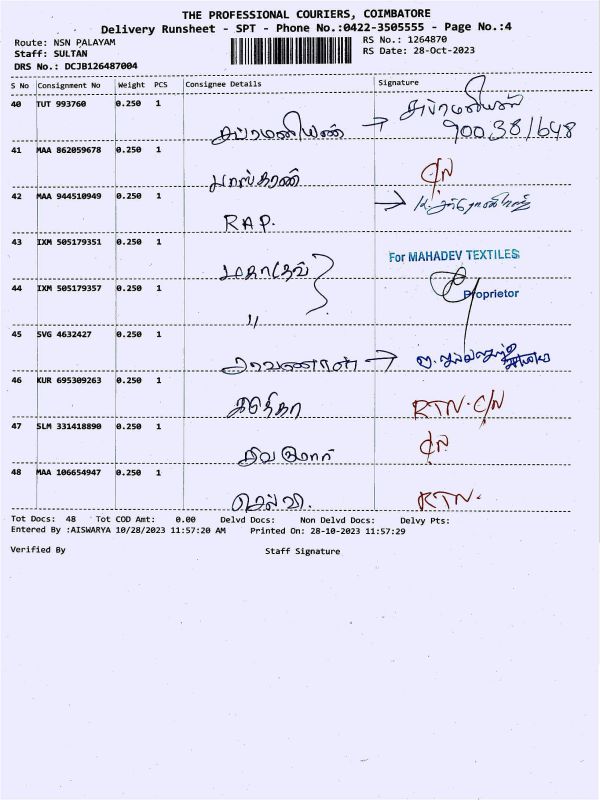 THE PROFESSIONAL COURIERS, COIMBATORE
Delivery Runsheet - SPT - Phone No.:0422-3505555 - Page No.:4
Route: NSN PALAYAM
RS No.: 1264870
Staff: SULTAN
RS Date: 28-Oct-2023
DRS No.: DCJB126487004
S No Consignment No Weight PCS Consignee Details Signature
40 TUT 993760 0.250 1
சுப்ரமணியண் → சுப்ரமணியன்
900381648
41 MAA 862059678 0.250 1
பாஸ்கரணி C/N
42 MAA 944510949 0.250 1
RAP. →
43 IXM 505179351 0.250 1
மகாதேவ்
For MAHADEV TEXTILES
44 IXM 505179357 0.250 1
Proprietor
"
45 SVG 4632427 0.250 1
சரவணாஸ் →
46 KUR 695309263 0.250 1
RTN. C/N
47 SLM 331418890 0.250 1
சிவகுமார் C/N.
48 MAA 106654947 0.250 1
செல்வி. RTN.
Tot Docs: 48 Tot COD Amt: 0.00 Delvd Docs: Non Delvd Docs: Delvy Pts:
Entered By :AISWARYA 10/28/2023 11:57:20 AM Printed On: 28-10-2023 11:57:29
Verified By Staff Signature